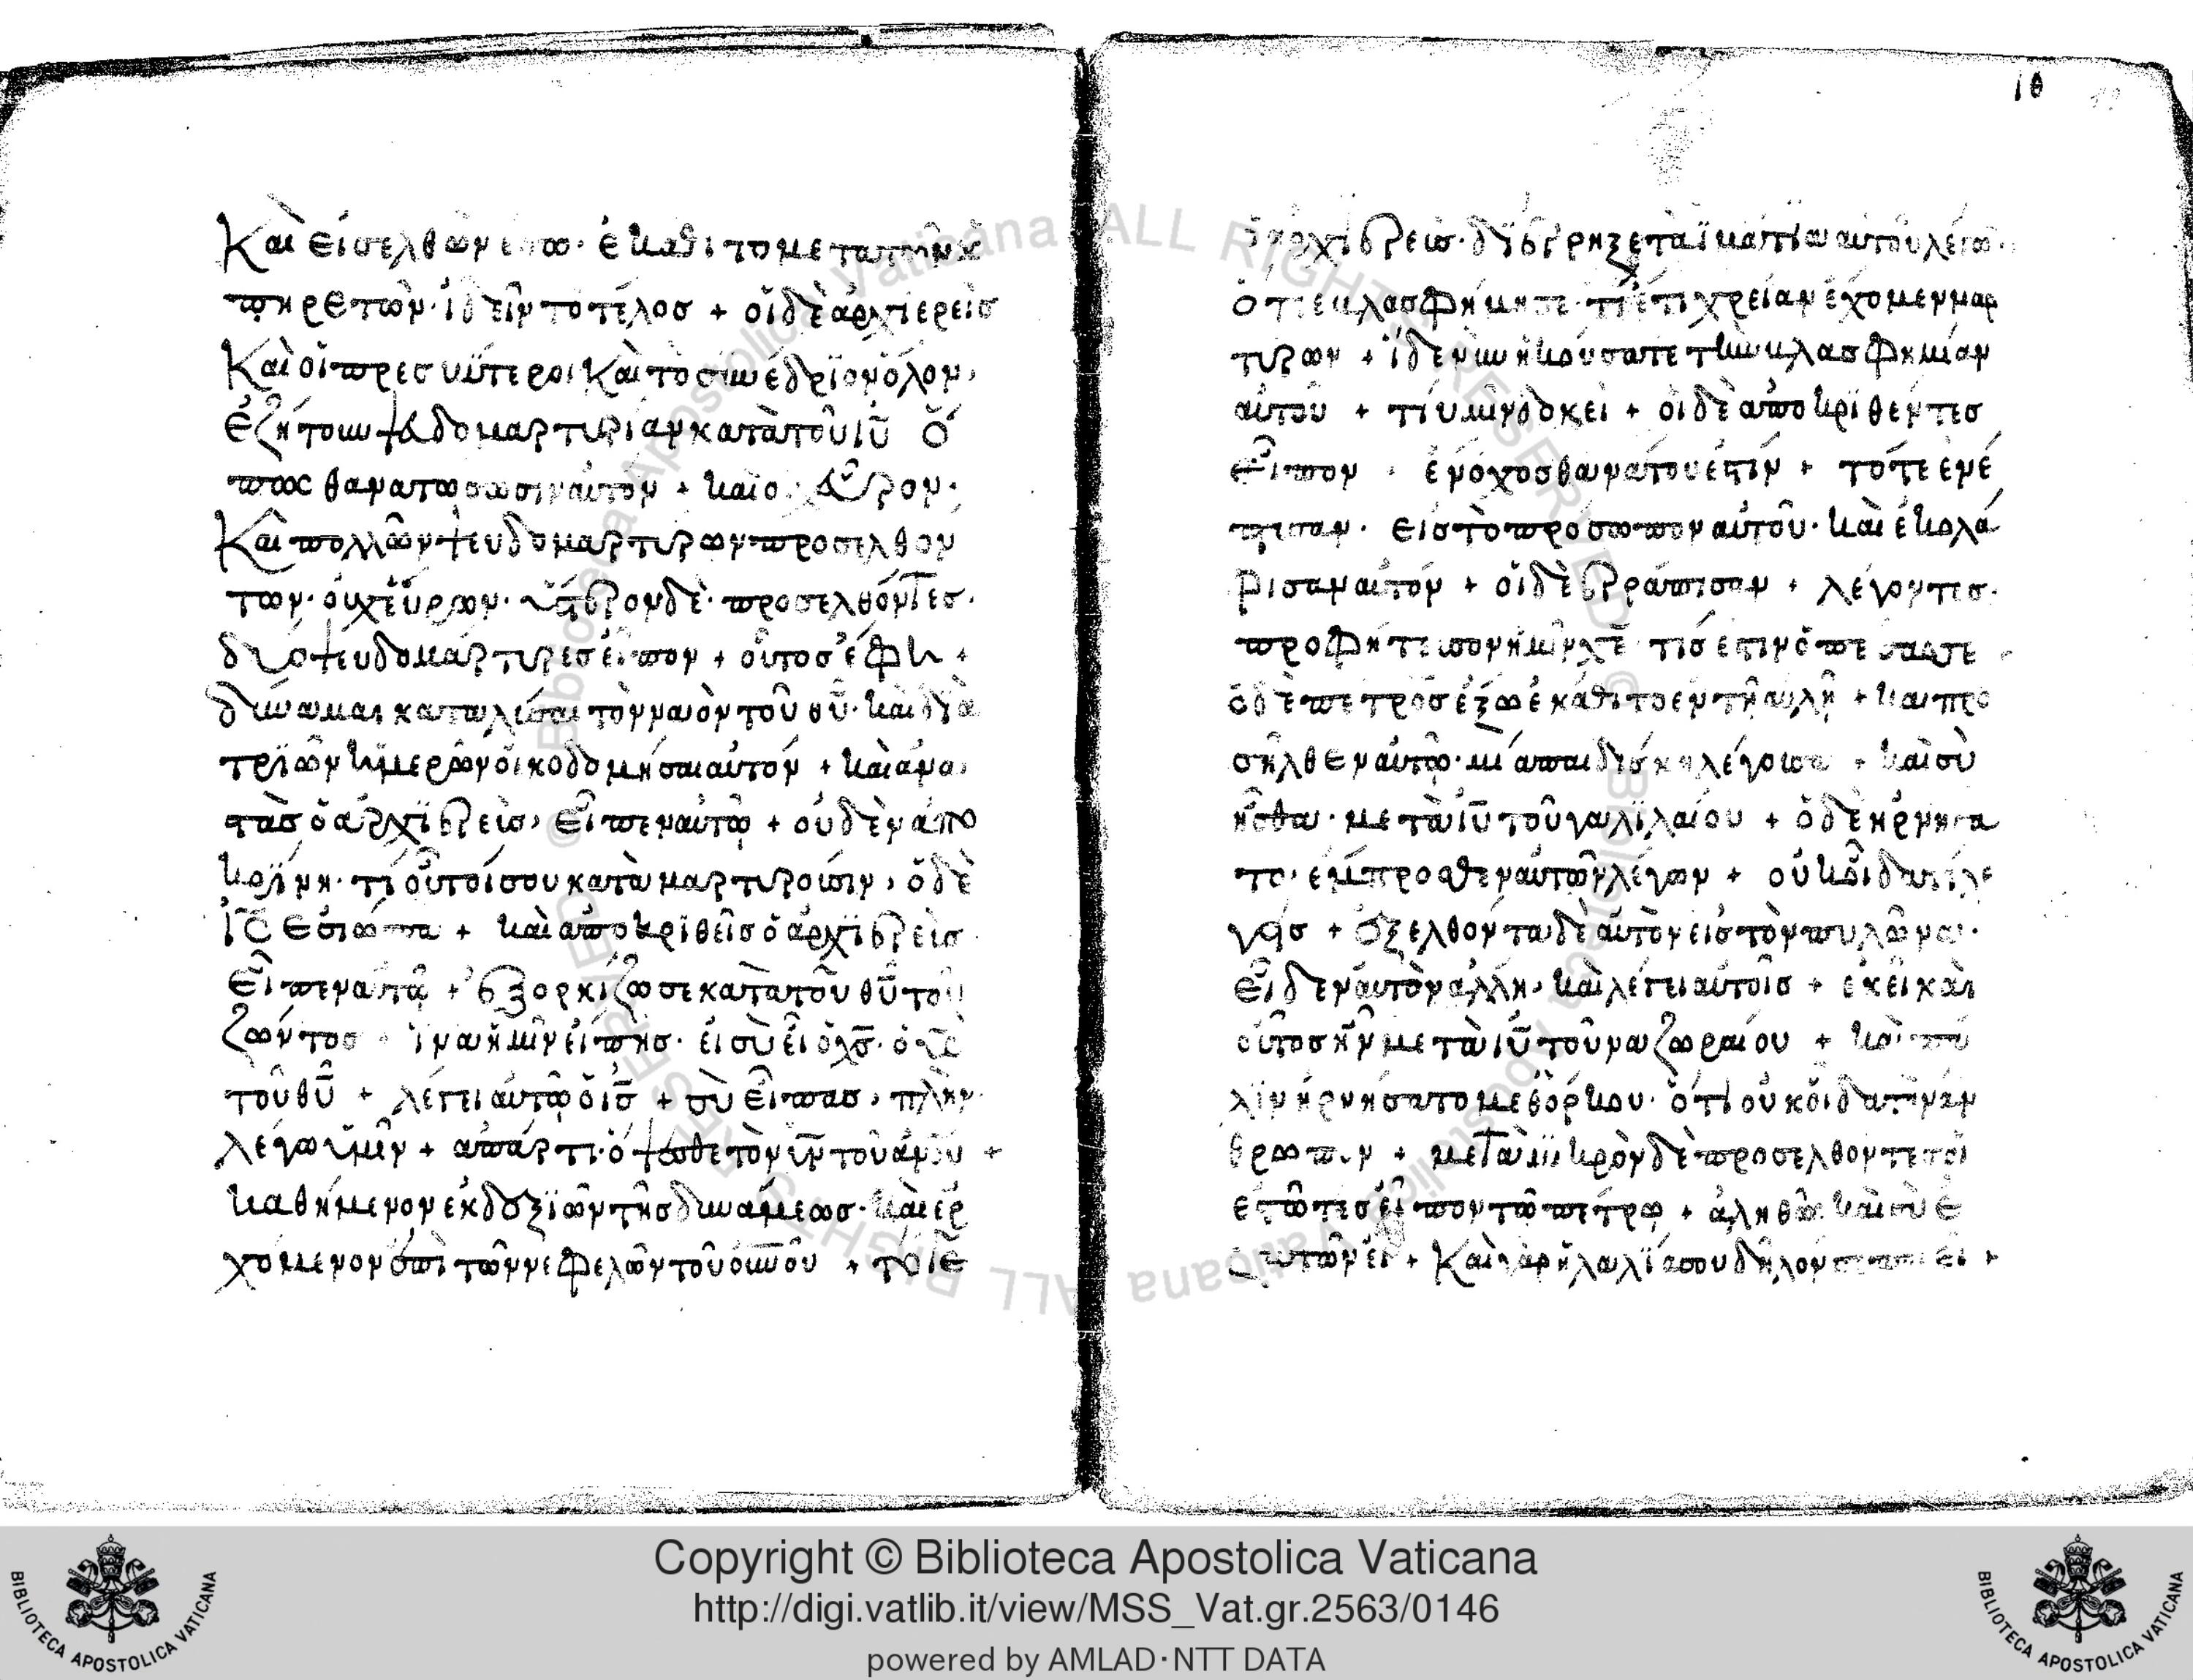 Καὶ εἰσελθὼν ἔσω· ἐκάθιτο μετὰ τῶν ὑ
πηρετῶν· ἰδεῖν τὸ τέλοσ + οἱ δὲ ἀρχιερεῖσ
Καὶ οἱ πρεσβύτεροι καὶ τὸ συνέδριον ὅλον,
ἐζήτουν ψευδομαρτυρίαν κατὰ τοῦ ιῦ ὅ
πωσ θανατώσωσιν αὐτὸν + καὶ οὐχ εὗρον·
Καὶ πολλῶν ψευδομαρτύρων προσελθόν
των· οὐχ εὗρον· ὕστερον δὲ· προσελθόντεσ·
δύο ψευδομάρτυρεσ εἶπον + οὗτοσ ἔφη +
δύναμαι καταλύσαι τὸν ναὸν τοῦ θῦ· καὶ διὰ
τριῶν ἡμερῶν οἰκοδομήσαι αὐτόν + καὶ ἀνα
στὰσ ὁ ἀρχιερεὺσ, εἶπεν αὐτῶ + οὐδὲν ἀπο
κρίνη· τί οὗτοί σου καταμαρτυροῦσιν, ὁ δὲ
ἰσ ἐσιώπα + καὶ ἀποκριθεὶσ ὁ ἀρχιερεὺσ
εἶπεν αὐτῶ + ἐξορκίζω σε κατὰ τοῦ θῦ τοῦ
ζῶντοσ · ἵνα ἡμῖν εἴπησ· εἰ σὺ εἶ ὁ χσ· ὁ υἱσ
τοῦ θῦ + λέγει αὐτῶ ὁ ισ + σὺ εἶπασ, πλὴν
λέγω ὑμῖν + ἀπάρτι ὄψεσθε τὸν υν τοῦ ἀνου +
καθήμενον ἐκ δεξιῶν τῆσ δυνάμεωσ· καὶ ἐρ
χόμενον ἐπὶ τῶν νεφελῶν τοῦ οὐνοῦ + τότε
ιθ 19
ὁ ἀρχιερεὺσ· διέρρηξε τὰ ἱμάτια αὐτοῦ λέγων·
ὅτι ἐβλασφήμησε· τί ἔτι χρείαν ἔχομεν μαρ
τύρων + ἴδε νῦν ἠκούσατε τὴν βλασφημίαν
αὐτοῦ + τί ὑμῖν δοκεῖ + οἱ δὲ ἀποκριθέντεσ
εἶπον · ἔνοχοσ θανάτου ἐστίν + τότε ἐνέ
πτυσαν· εἰσ τὸ πρόσωπον αὐτοῦ· καὶ ἐκολά
φισαν αὐτόν + οἱ δὲ ἐρράπισαν + λέγοντεσ·
προφήτευσον ἡμῖν χε τίσ ἐστιν ὁ πέσασ σε
ὁ δὲ πέτροσ ἔξω ἐκάθιτο ἐν τῆ αὐλῆ + καὶ προ
σῆλθεν αὐτῶ· μία παιδίσκη λέγουσα + καὶ σὺ
ἦσθα· μετὰ ιῦ τοῦ γαλιλαίου + ὁ δὲ ἠρνήσα
το· ἔμπροσθεν αὐτῶν λέγων + οὐκ οἶδα τί λέ
γεισ + ἐξελθόντα δὲ αὐτὸν εἰσ τὸν πυλῶνα·
εἶδεν αὐτὸν ἄλλη, καὶ λέγει αὐτοῖσ + ἐκεῖ καὶ
οὗτοσ ἦν μετὰ ιῦ τοῦ ναζωραίου + καὶ πά
λιν ἠρνήσατο μεθόρκου· ὅτι οὐκ οἶδα τὸν ἄν
θρωπον + μετὰ μικρὸν δὲ προσελθόντεσ οἱ
ἑστῶτεσ εἶπον τῶ πέτρω + ἀληθῶσ καὶ σὺ ἐ
ξ αὐτῶν εἶ + Καὶ γὰρ ἡ λαλιά σου δῆλόν σε ποιεῖ +
Copyright © Biblioteca Apostolica Vaticana
http://digi.vatlib.it/view/MSS_Vat.gr.2563/0146
powered by AMLAD·NTT DATA